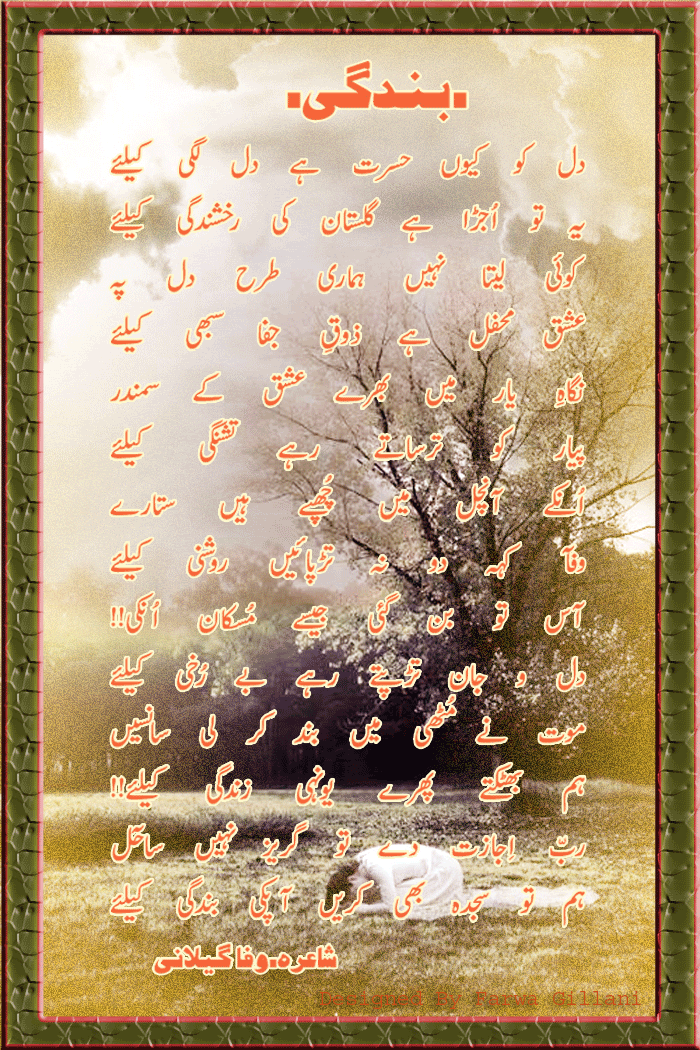 .بندگی.
دل کو کیوں حسرت ہے دل لگی کیلئے
یہ تو اُجڑا ہے گلستان کی رخشندگی کیلئے
کوئی لیتا نہیں ہماری طرح دل پہ
عشق محفل ہے ذوقِ جفا سبھی کیلئے
نگاہِ یار میں بھرے عشق کے سمندر
پیار کو ترساتے رہے تشنگی کیلئے
اُنکے آنچل میں چُھپے ہیں ستارے
وفآ کہہ دو نہ تڑپائیں روشنی کیلئے
آس تو بن گئی جیسے مُسکان اُنکی!!
دل و جان تڑپتے رہے بے رُخی کیلئے
موت نے مُٹھی میں بند کر لی سانسیں
ہم بھٹکتے پھرے یونہی زندگی کیلئے!!
ربّ اِجازت دے تو گریز نہیں ساحؔل
ہم تو سجدہ بھی کریں آپکی بندگی کیلئے
شاعرہ.وفا گیلانی
Designed By Farwa Gillani